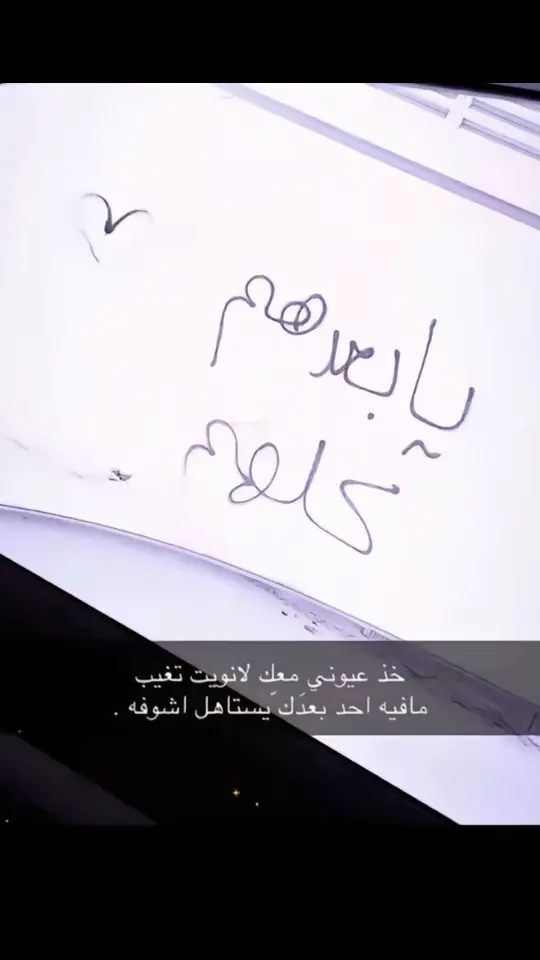 يا بعدهم
كلهم
خذ عيوني معك لانويت تغيب
مافيه احد بعدَك يستاهل اشوفه .